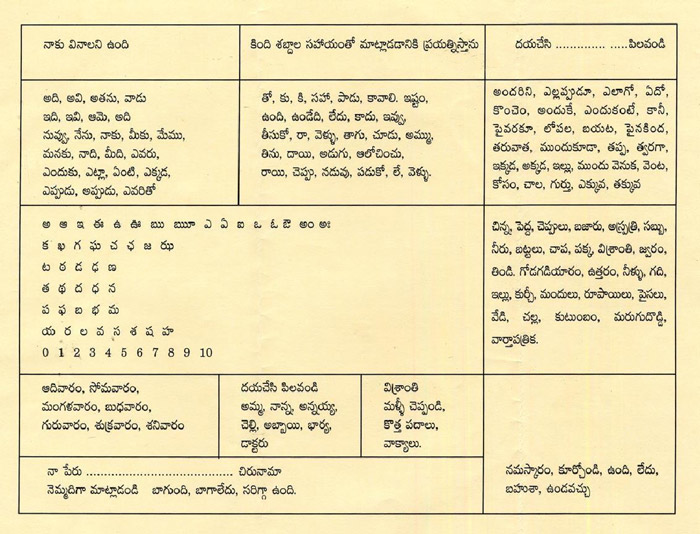 నాకు వినాలని ఉంది
కింది శబ్దాల సహాయంతో మాట్లాడడానికి ప్రయత్నిస్తాను
దయచేసి .............. .....పిలవండి
అది, అవి, అతను, వాడు
ఇది, ఇవి, ఆమె, అది
నువ్వు, నేను, నాకు, మీకు, మేము,
మనకు, నాది, మీది, ఎవరు,
ఎందుకు, ఎట్లా, ఏంటి, ఎక్కడ,
ఎప్పుడు, అప్పుడు, ఎవరితో
తో, కు, కి, సహా, పాడు, కావాలి. ఇష్టం,
ఉంది, ఉండేది, లేదు, కాదు, ఇవ్వు,
తీసుకో, రా, వెళ్ళు, తాగు, చూడు, అమ్ము,
తిను, దాయి, అడుగు, ఆలోచించు,
రాయి, చెప్పు, నడువు, పడుకో, లే, వెళ్ళు.
అందరిని, ఎల్లప్పుడూ, ఎలాగో, ఏదో,
కొంచెం, అందుకే, ఎందుకంటే, కానీ,
పైవరకూ, లోపల, బయట, పైనకింద,
తరువాత, ముందుకూడా, తప్ప, త్వరగా,
ఇక్కడ, అక్కడ, ఇల్లు, ముందు వెనుక, వెంట,
కోసం, చాల, గుర్తు, ఎక్కువ, తక్కువ
అ ఆ ఇ ఈ ఉ ఊ ఋ ౠ ఎ ఏ ఐ ఒ ఓ ఔ అం అః
క ఖ గ ఘ చ ఛ జ ఝ
ట ఠ డ ఢ ణ
త థ ద ధ న
ప ఫ బ భ మ
య ర ల వ స శ ష హ
0 1 2 3 4 5 6 7 8 9 10
చిన్న, పెద్ద, చెప్పులు, బజారు, అస్పత్రి, సబ్బు,
నీరు, బట్టలు, చాప, పక్క, విశ్రాంతి, జ్వరం,
తిండి. గోడగడియారం, ఉత్తరం, నీళ్ళు, గది,
ఇల్లు, కుర్చీ, మందులు, రూపాయిలు, పైసలు,
వేడి, చల్ల, కుటుంబం, మరుగుదొడ్డి,
వార్తాపత్రిక.
ఆదివారం, సోమవారం,
మంగళవారం, బుధవారం,
గురువారం, శుక్రవారం, శనివారం
దయచేసి పిలవండి
అమ్మ, నాన్న, అన్నయ్య,
చెల్లి, అబ్బాయి, భార్య,
డాక్టరు
విశ్రాంతి
మళ్ళీ చెప్పండి,
కొత్త పదాలు,
వాక్యాలు.
నా పేరు .................................... చిరునామా
నెమ్మదిగా మాట్లాడండి బాగుంది, బాగాలేదు, సరిగ్గా ఉంది.
నమస్కారం, కూర్చోండి, ఉంది, లేదు,
బహుశా, ఉండవచ్చు